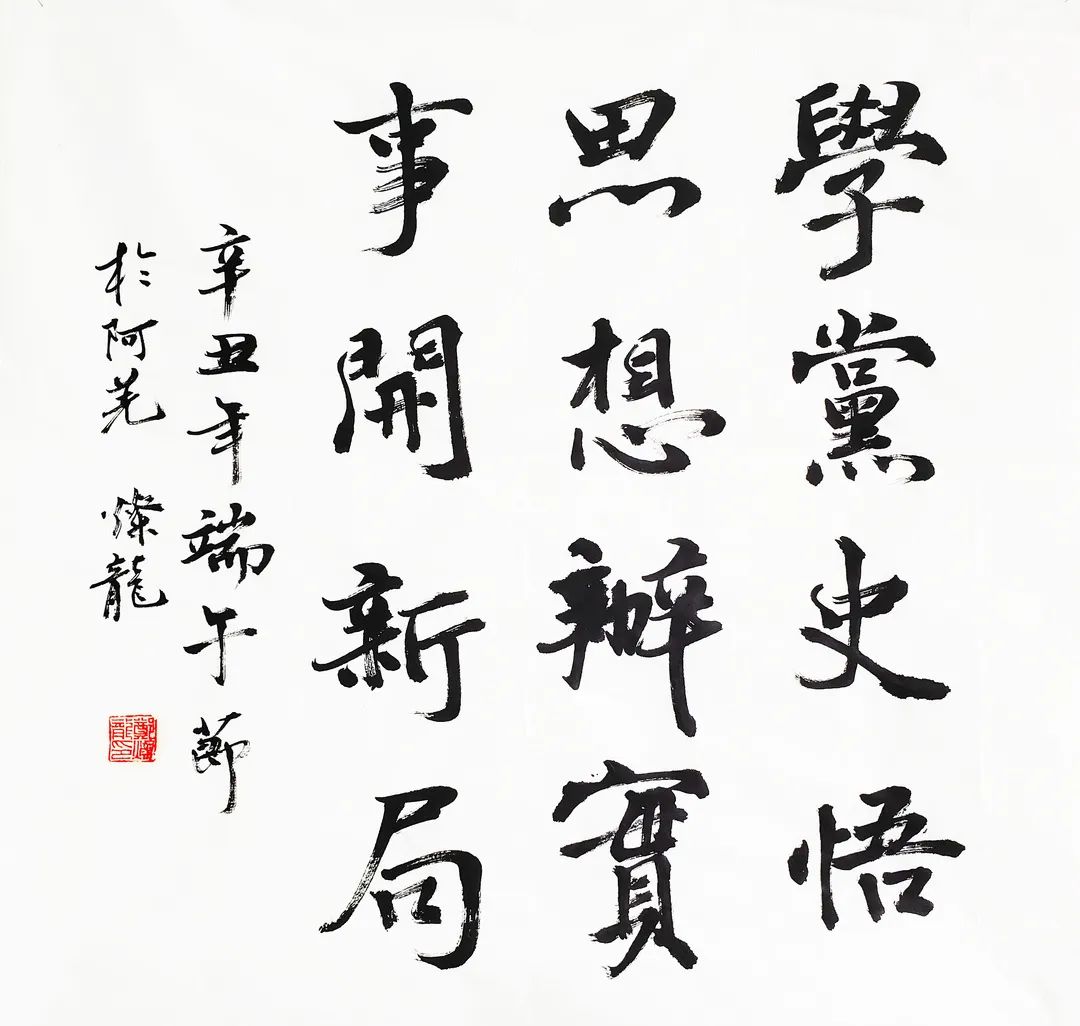 學黨史悟
思想辦實
事開新局
辛丑年端午節
於阿羌 燦龍